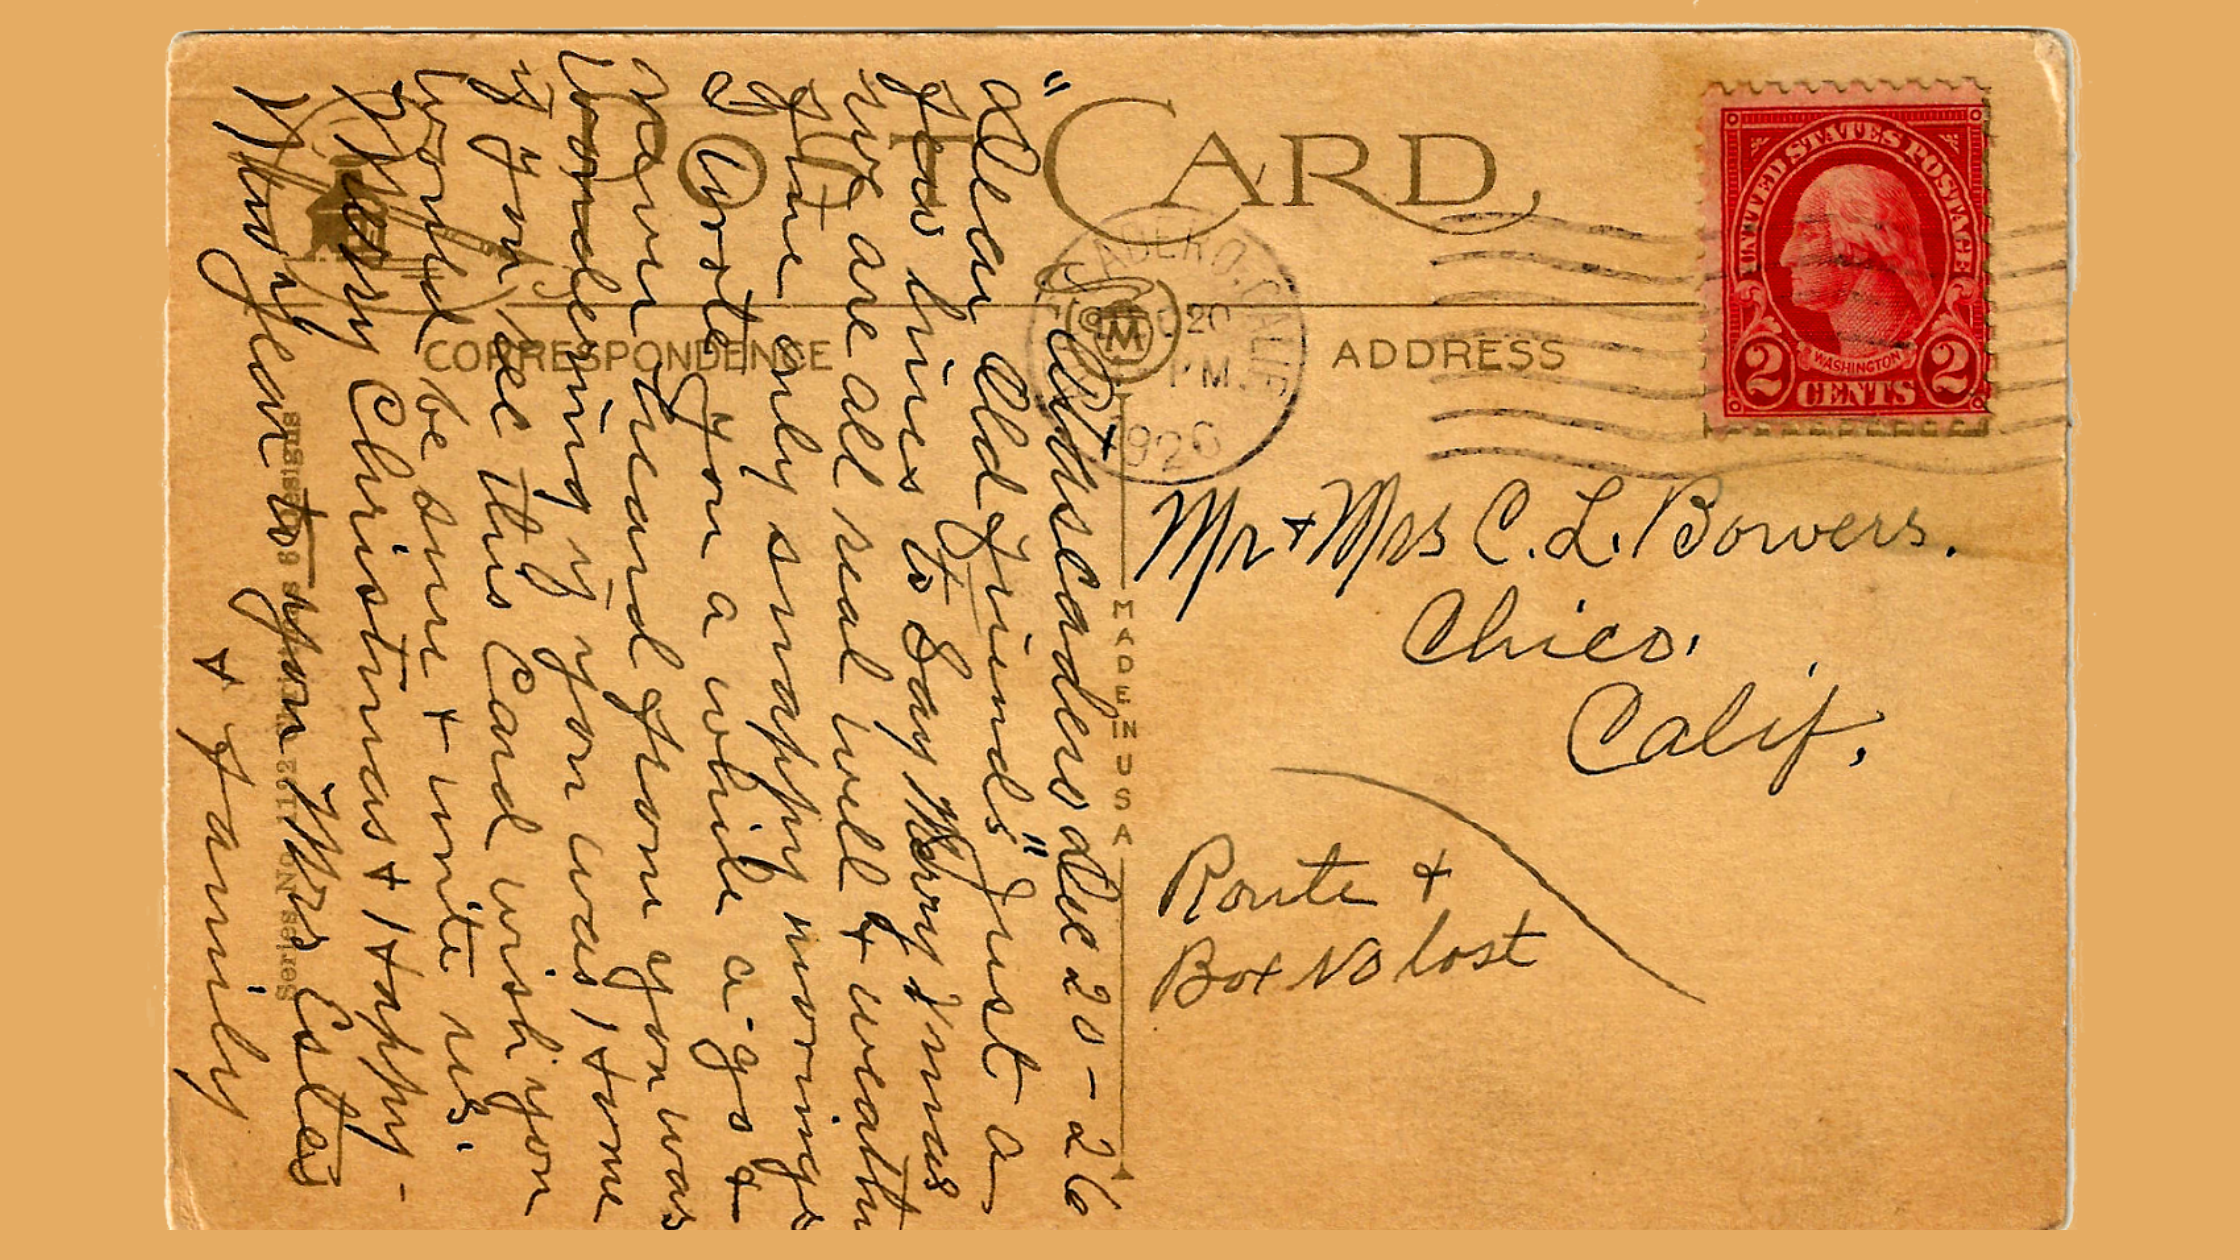 POST CARD
CORRESPONDENCE
ADDRESS
UNITED STATES POSTAGE
WASHINGTON
2 CENTS 2
CALIF.
20
PM
1926
M
MADE IN USA
Atascadero Dec 20-26
"Dear Old Friends" Just a
few lines to Say Merry Xmas
we are all real well & weather
fine only snappy mornings
I wrote you a while a-go &
never heard from you was
wondering if you was Home
if you see this Card wish you
would be sure & write us.
Merry Christmas & Happy-
New Year to you Mrs Estes
& family
Mr & Mrs C. L. Bowers.
Chico.
Calif.
Route &
Box No lost
Series No. 1192 6 Designs